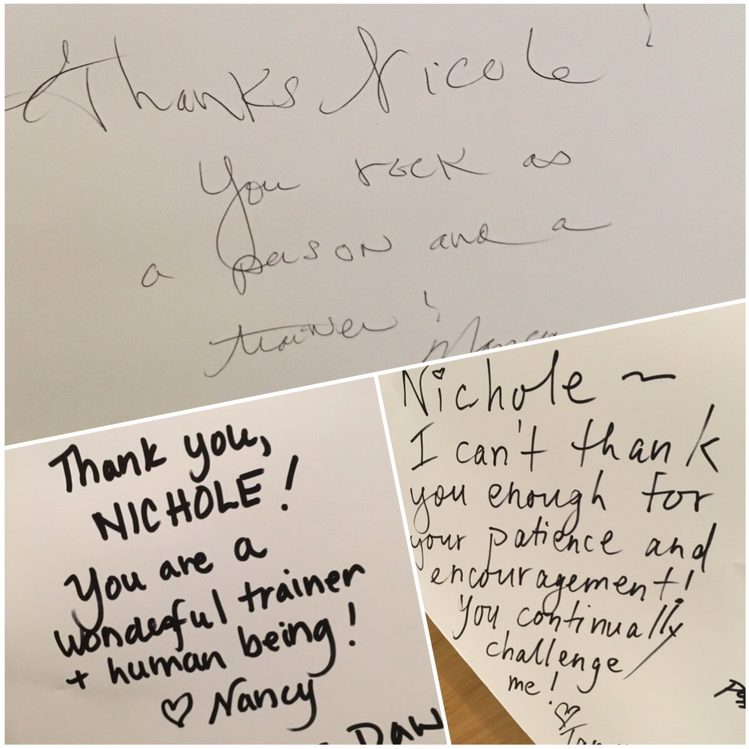 Thanks Nicole!
You rock as
a person and a
trainer!
Thank you,
NICHOLE!
You are a
wonderful trainer
+ human being!
♡ Nancy
Nichole ~
I can't thank
you enough for
your patience and
encouragement!
You continually
challenge
me!
♡